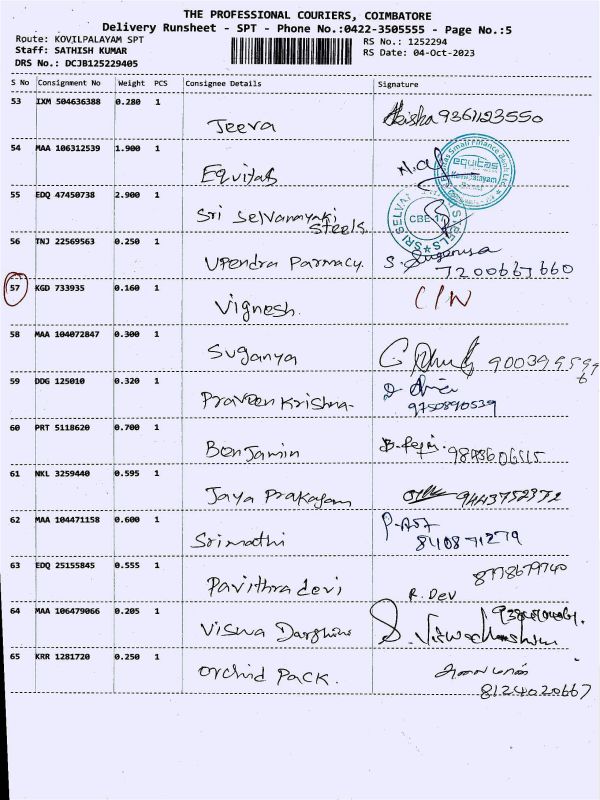 THE PROFESSIONAL COURIERS, COIMBATORE
Delivery Runsheet - SPT - Phone No.:0422-3505555 - Page No.:5
Route: KOVILPALAYAM SPT
RS No.: 1252294
Staff: SATHISH KUMAR
RS Date: 04-Oct-2023
DRS No.: DCJB125229405
S No Consignment No Weight PCS Consignee Details Signature
53 IXM 504636388 0.280 1
Jeeva 9361123550
54 MAA 106312539 1.900 1
Equitas
equitas
55 EDQ 47450738 2.900 1
Sri Selvanayaki
Steels
CBE
56 TNJ 22569563 0.250 1
Upendra Parmacy. S. Sugenya
7200667660
57 KGD 733935 0.160 1
Vignesh. C/N
58 MAA 104072847 0.300 1
Suganya
59 DDG 125010 0.320 1
Praveen Krishna
9750890539
60 PRT 5118620 0.700 1
Benjamin 9843606515
61 NKL 3259440 0.595 1
Jaya Prakasam 9443752372
62 MAA 104471158 0.600 1
Srimathi
8408871279
63 EDQ 25155845 0.555 1
Pavithra devi 8778679740
R. Dev
64 MAA 106479066 0.205 1
Viswa Darshini
65 KRR 1281720 0.250 1
Orchid Pack.
8124020667